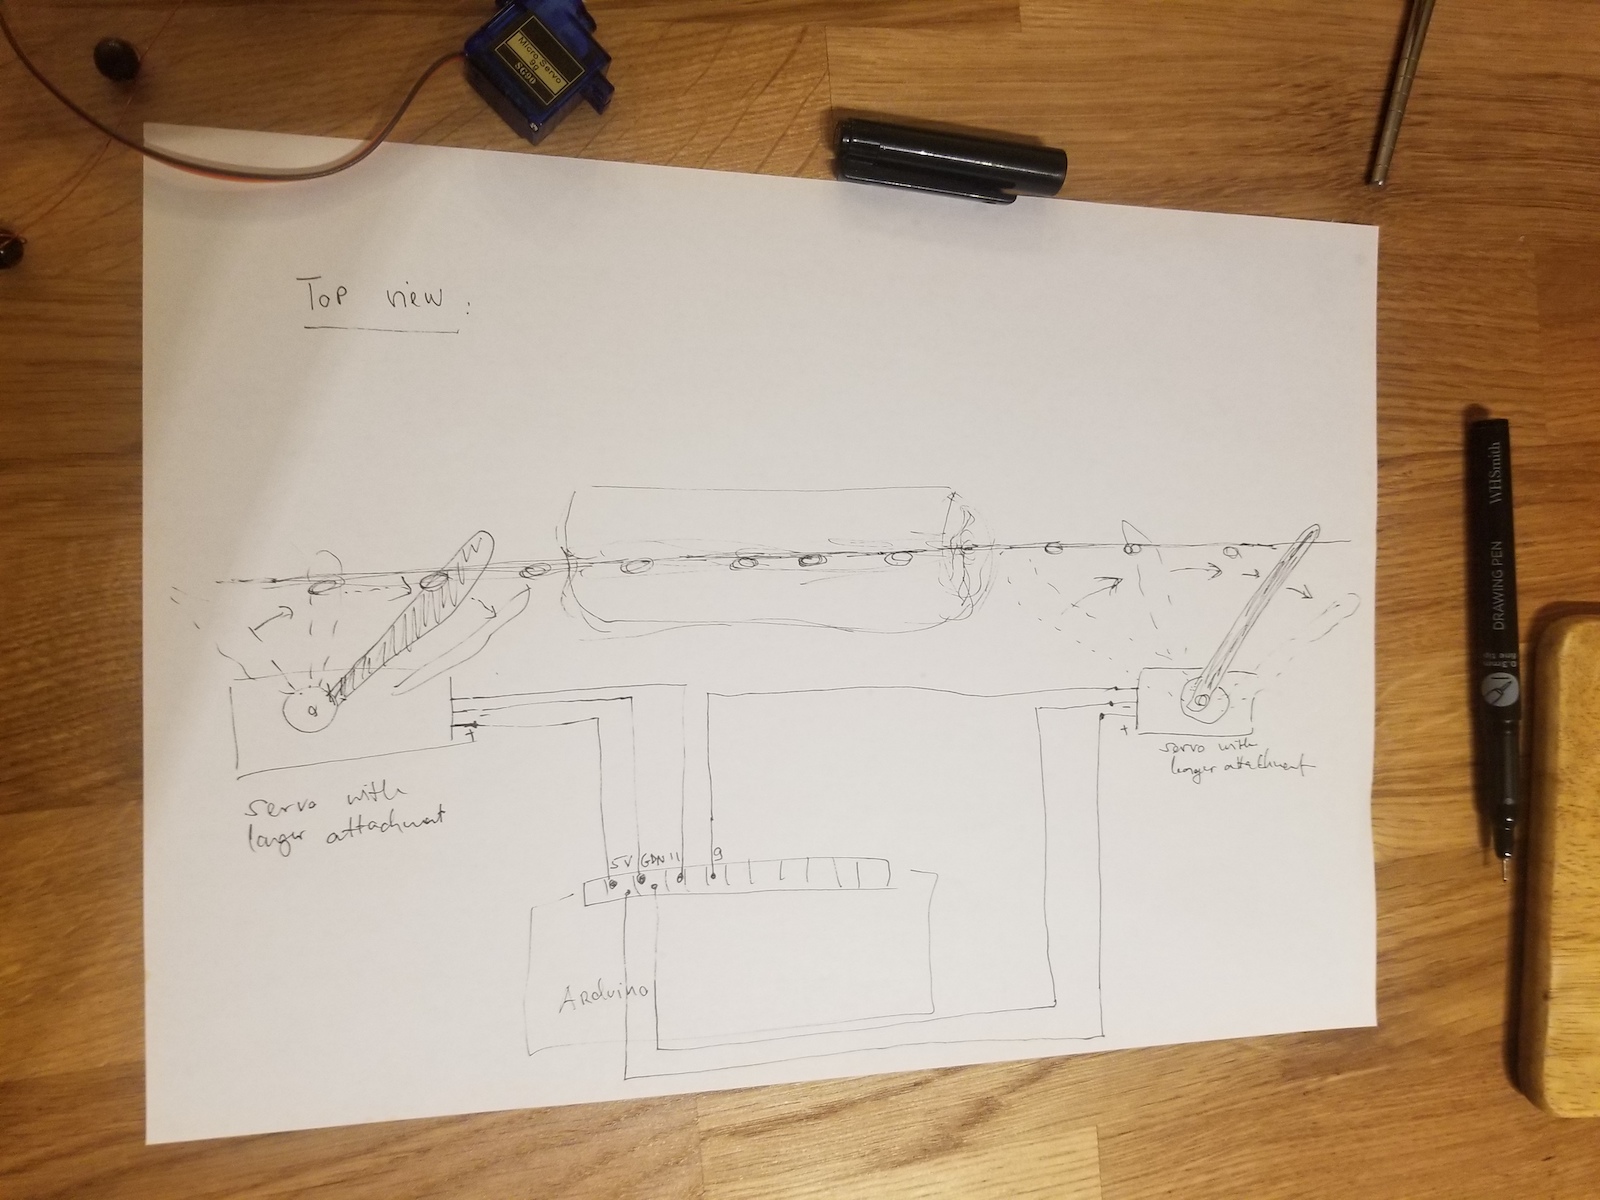 Micro Servo
9g
SG90
Top view :
servo with
longer attachment
+
+
servo with
longer attachment
5V GDN 11 9
Arduino
WHSmith
DRAWING PEN
0.3mm
fine tip